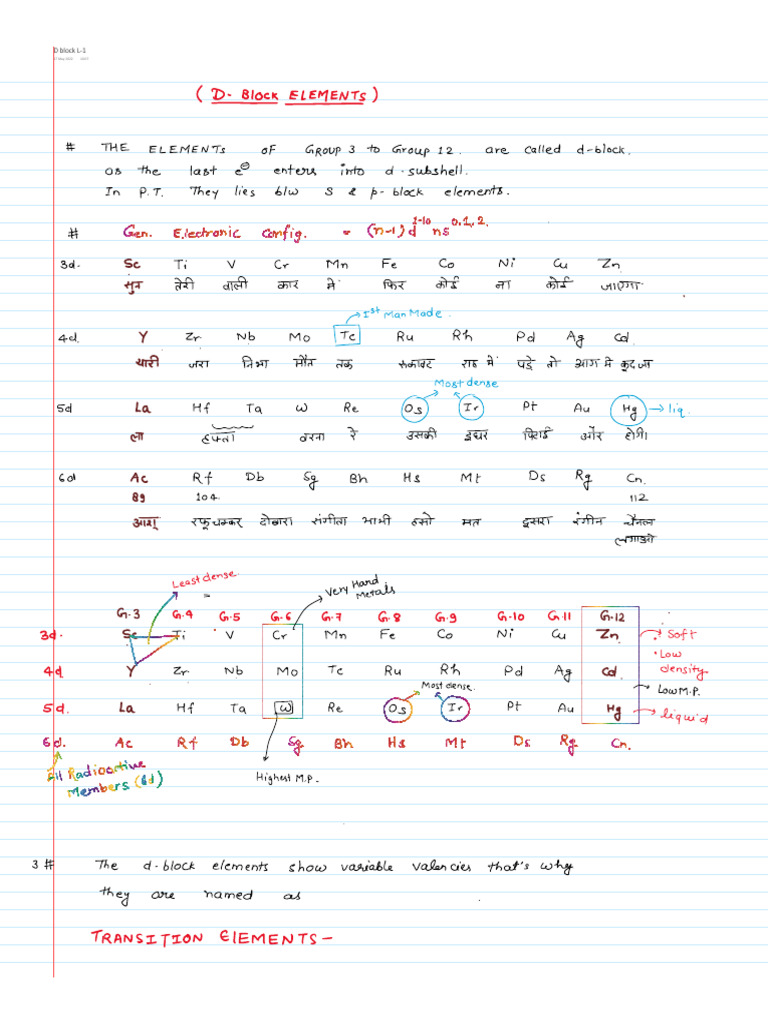 D block L-1
( D- Block ELEMENTS )
# THE ELEMENTS OF GROUP 3 to Group 12. are called d-block.
as the last e⊖ enters into d-subshell.
In P.T. They lies b/w S & p-block elements.
# Gen. Electronic Config. = (n-1)d¹⁻¹⁰ ns⁰·¹·²·
3d- Sc Ti V Cr Mn Fe Co Ni Cu Zn
सुन तेरी वाली कार में फिर कोई ना कोई जाएगा
→ Iˢᵗ Man Made.
4d. Y Zr Nb Mo Tc Ru Rh Pd Ag Cd
यारी जरा निभा मौत तक रुकावट राह में पड़े तो आग में कूद जा
Most dense
5d La Hf Ta W Re Os Ir Pt Au Hg → liq.
ला हफ्ता वरना रे उसकी इधर पिटाई और होगी।
6d Ac Rf Db Sg Bh Hs Mt Ds Rg Cn.
89 104. 112
आश् रफूचक्कर दोबारा संगीता भाभी हसो मत दूसरा रंगीन चैनल
लगाओ
Least dense
Very Hard
Metals
G.3 G.4 G.5 G.6 G.7 G.8 G.9 G.10 G.11 G.12
3d. Sc Ti V Cr Mn Fe Co Ni Cu Zn → Soft
• Low
density
4d Y Zr Nb Mo Tc Ru Rh Pd Ag Cd
Most dense.
→ Low M.P.
5d. La Hf Ta W Re Os Ir Pt Au Hg → liquid
6d. Ac Rf Db Sg Bh Hs Mt Ds Rg Cn.
All Radioactive
Members (6d)
Highest M.P.
3 # The d-block elements show variable valencies that's why
they are named as
TRANSITION ELEMENTS -